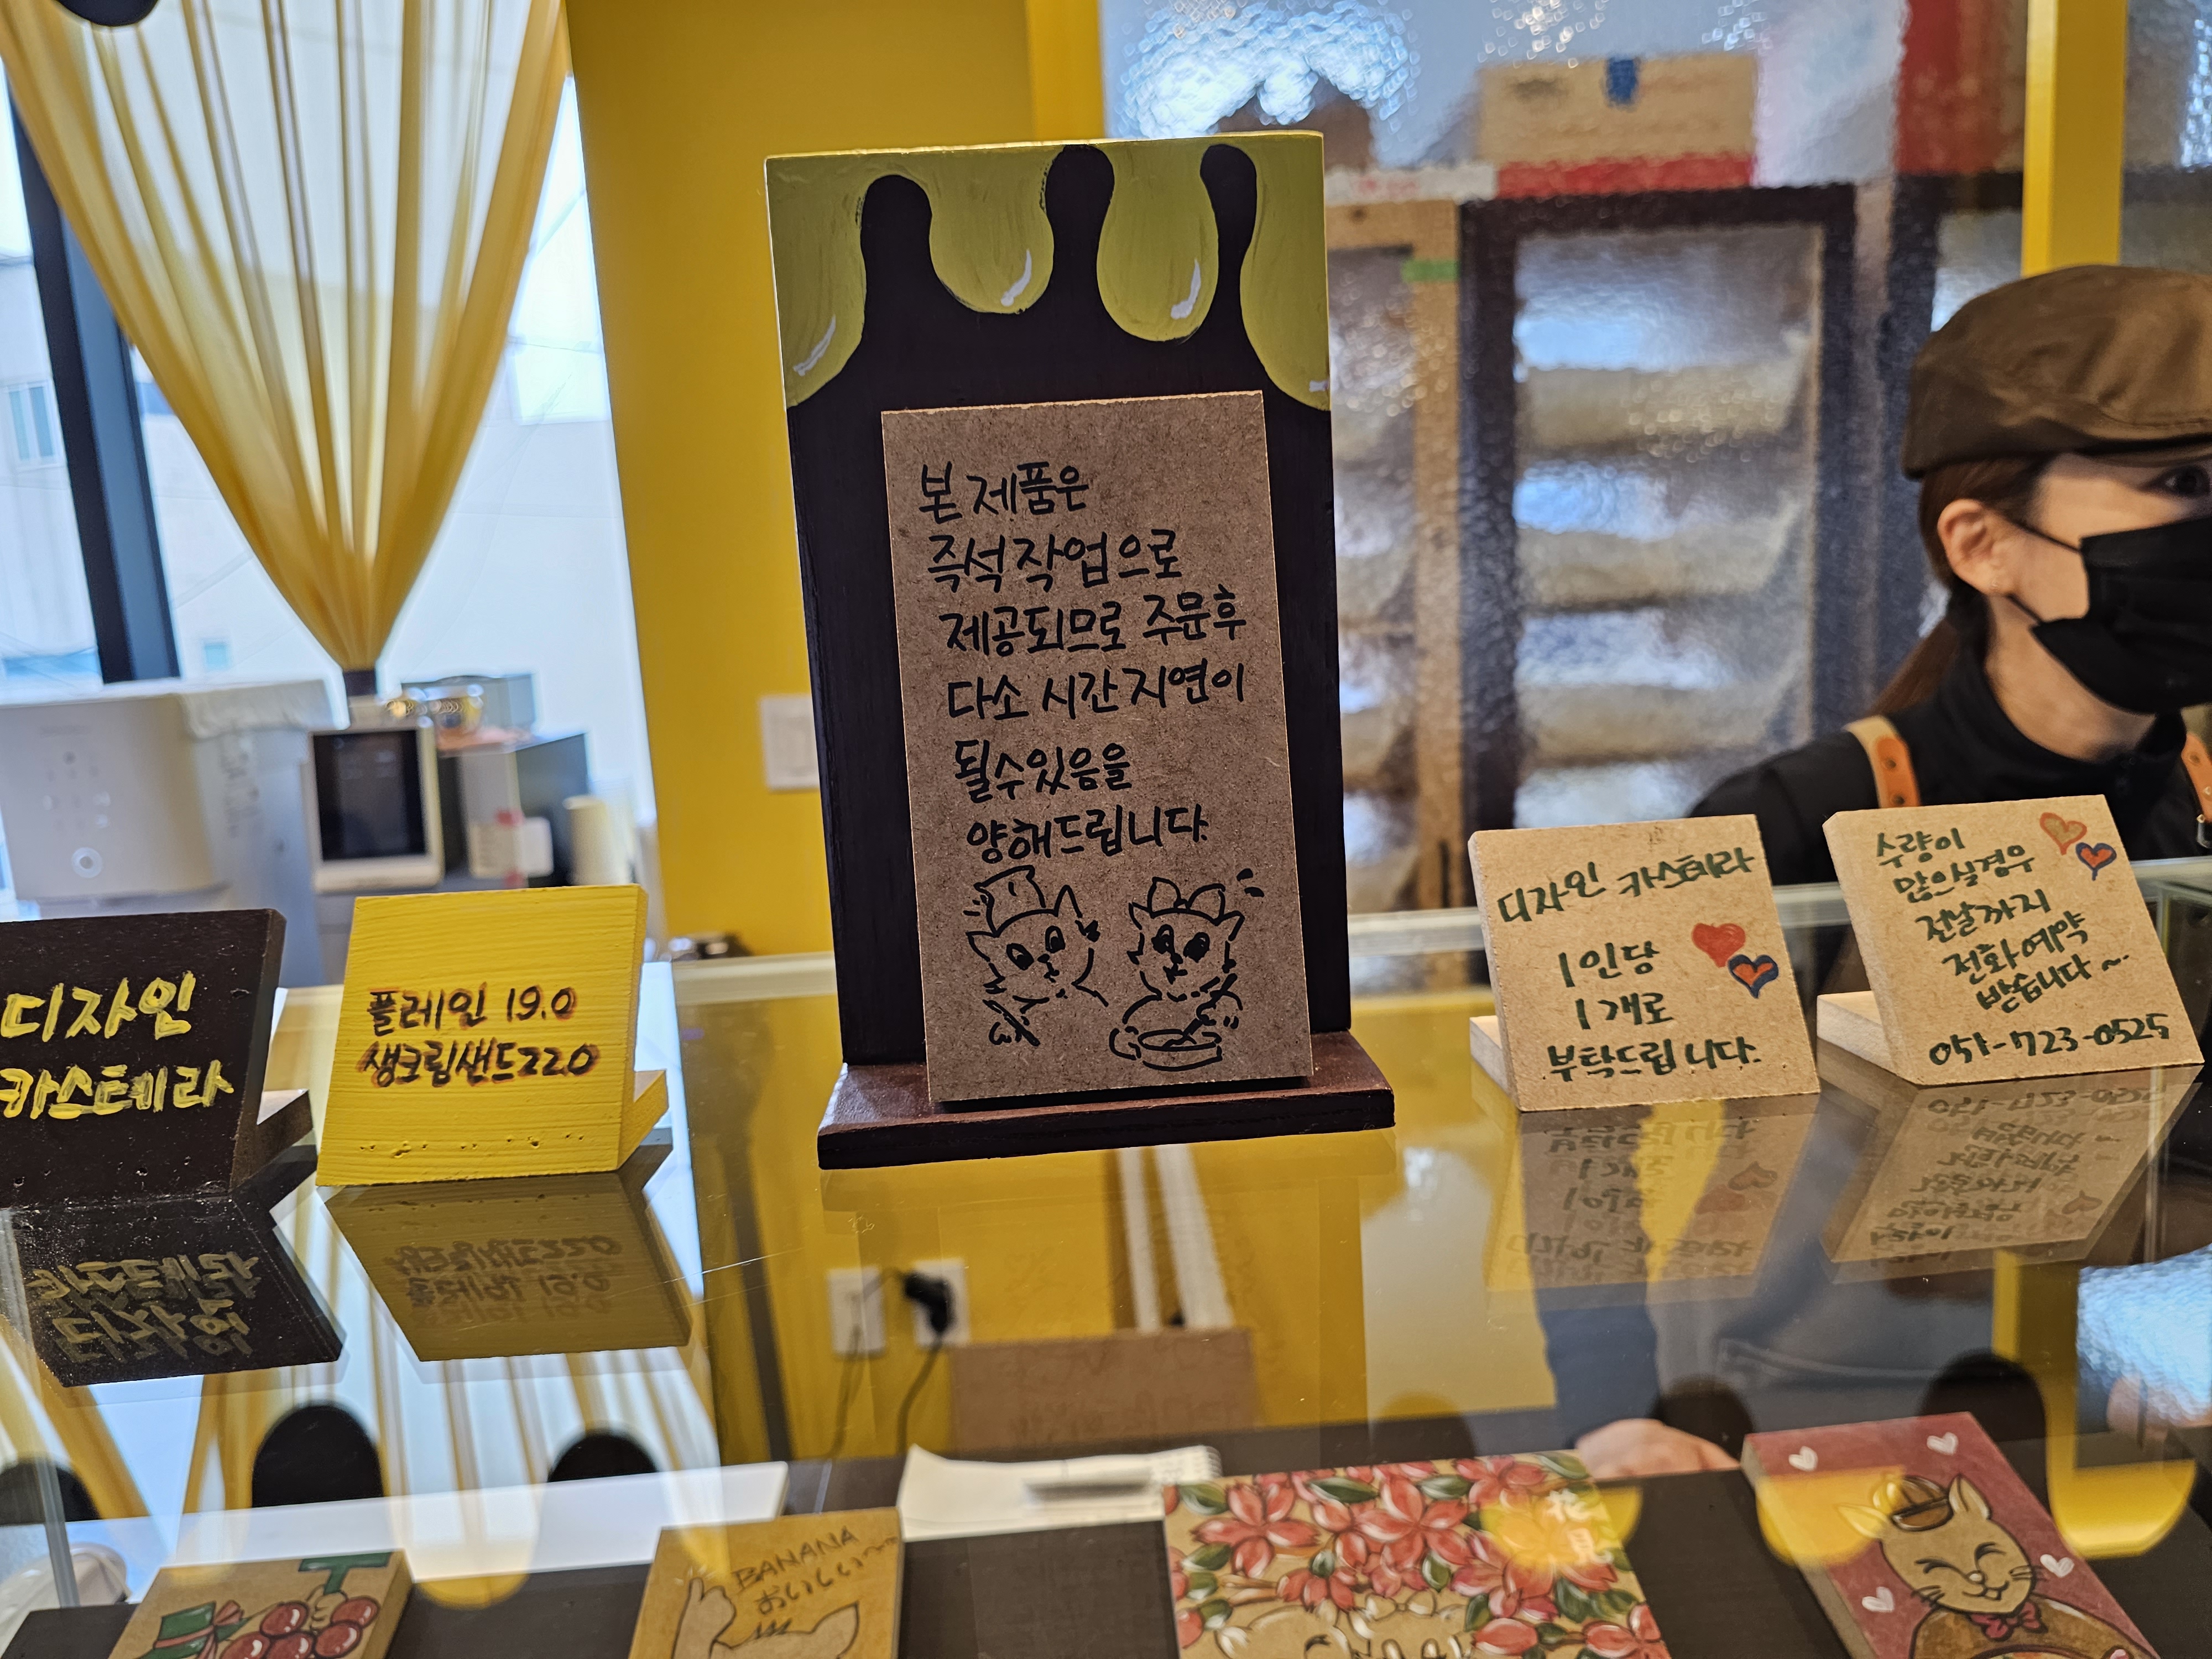 디자인
카스테라
플레인 19.0
생크림샌드22.0
본 제품은
즉석 작업으로
제공되므로 주문후
다소 시간 지연이
될수있음을
양해드립니다.
디자인 카스테라
1인당
1개로
부탁드립니다.
수량이
많으실경우
전날까지
전화예약
받습니다~
051-723-0525
BANANA
おいしい〜
花見